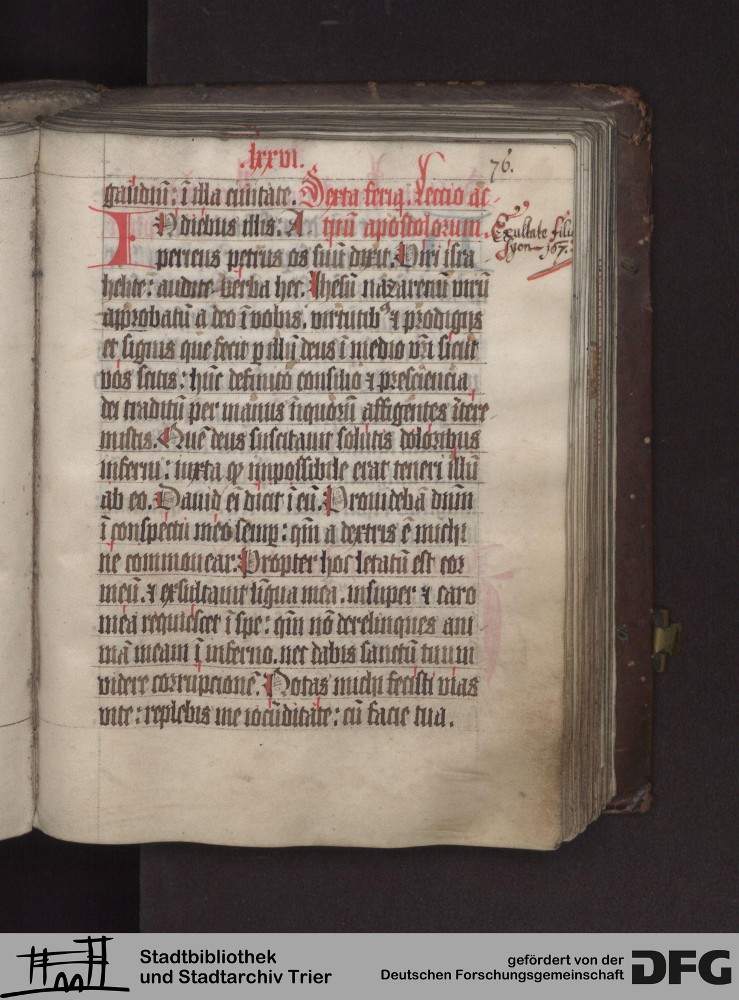 .lxxvi.
76.
gaudiū: ī illa ciuitate. Sexta feria. Leccio ac-
IN diebus illis: A- tuū apostolorum.
Exultate filie
syon 167.
periens petrus os suū dixit. Viri isra
helite: audite verba hec. Ihesū nazarenū virū
approbatū a deo ī vobis. virtutibꝰ ⁊ prodigijs
et signis que fecit ꝑ illū deus ī medio vr̄i sicut
vos scitis: hūc definito consilio ⁊ presciencia
dei traditū per manus īiquorū affigentes ītere
mistis. Quē deus suscitauit solutis doloribus
inferni: iuxta qꝫ impossibile erat teneri illū
ab eo. Dauid eī dicit ī eū. Prouidebā dnm̄
ī conspectu meo semꝑ: qm̄ a dextris ē michi
ne commouear. Propter hoc letatū est cor
meū. ⁊ exsultauit līgua mea. insuper ⁊ caro
mea requiescet ī spe: qm̄ nō derelinques ani
mā meam ī inferno. nec dabis sanctū tuum
videre corrupcionē. Notas michi fecisti vias
vite: replebis me iocūditate: cū facie tua.
Stadtbibliothek
und Stadtarchiv Trier
gefördert von der
Deutschen Forschungsgemeinschaft
DFG